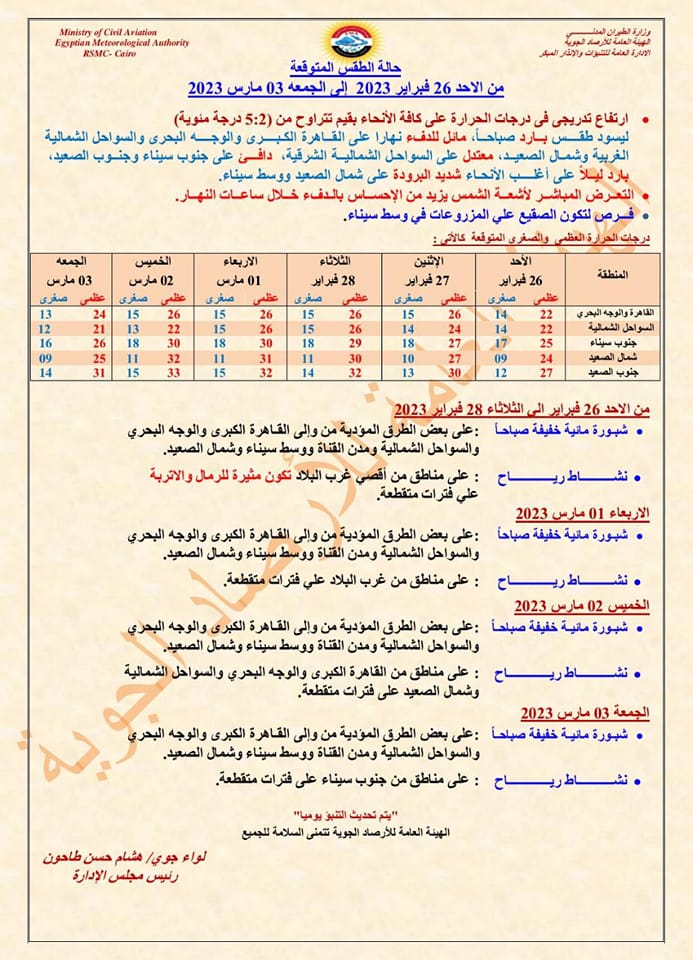 Ministry of Civil Aviation
Egyptian Meteorological Authority
RSMC- Cairo
وزارة الطيران المدني
الهيئة العامة للأرصاد الجوية
الإدارة العامة للتنبؤات والإنذار المبكر
حالة الطقس المتوقعة
من الاحد 26 فبراير 2023 إلى الجمعه 03 مارس 2023
• ارتفاع تدريجى فى درجات الحرارة على كافة الأنحاء بقيم تتراوح من (5:2 درجة مئوية)
ليسود طقس بارد صباحاً، مائل للدفء نهارا على القاهرة الكبرى والوجه البحرى والسواحل الشمالية
الغربية وشمال الصعيد، معتدل على السواحل الشمالية الشرقية، دافئ على جنوب سيناء وجنوب الصعيد،
بارد ليلاً على أغلب الأنحاء شديد البرودة على شمال الصعيد ووسط سيناء.
• التعرض المباشر لأشعة الشمس يزيد من الإحساس بالدفء خلال ساعات النهار.
• فرص لتكون الصقيع علي المزروعات في وسط سيناء.
درجات الحرارة العظمي والصغرى المتوقعة كالآتي :
المنطقة الأحد الإثنين الثلاثاء الاربعاء الخميس الجمعه
26 فبراير 27 فبراير 28 فبراير 01 مارس 02 مارس 03 مارس
عظمي صغرى عظمي صغرى عظمي صغرى عظمي صغرى عظمي صغرى عظمي صغرى
القاهرة والوجه البحري 22 14 26 15 26 15 26 15 26 15 24 13
السواحل الشمالية 22 14 24 14 26 15 26 15 22 13 21 12
جنوب سيناء 25 17 27 18 29 18 30 18 30 18 26 16
شمال الصعيد 24 09 27 10 30 11 31 11 32 11 25 09
جنوب الصعيد 27 12 30 13 32 14 32 15 33 15 31 14
من الاحد 26 فبراير الى الثلاثاء 28 فبراير 2023
• شبورة مائية خفيفة صباحاً :على بعض الطرق المؤدية من وإلى القاهرة الكبرى والوجه البحري
والسواحل الشمالية ومدن القناة ووسط سيناء وشمال الصعيد.
• نشاط رياح : على مناطق من أقصي غرب البلاد تكون مثيرة للرمال والاتربة
علي فترات متقطعة.
الاربعاء 01 مارس 2023
• شبورة مائية خفيفة صباحاً :على بعض الطرق المؤدية من وإلى القاهرة الكبرى والوجه البحري
والسواحل الشمالية ومدن القناة ووسط سيناء وشمال الصعيد.
• نشاط رياح : على مناطق من غرب البلاد علي فترات متقطعة.
الخميس 02 مارس 2023
• شبورة مائية خفيفة صباحاً :على بعض الطرق المؤدية من وإلى القاهرة الكبرى والوجه البحري
والسواحل الشمالية ومدن القناة ووسط سيناء وشمال الصعيد.
• نشاط رياح : على مناطق من القاهرة الكبرى والوجه البحري والسواحل الشمالية
وشمال الصعيد على فترات متقطعة.
الجمعة 03 مارس 2023
• شبورة مائية خفيفة صباحاً :على بعض الطرق المؤدية من وإلى القاهرة الكبرى والوجه البحري
والسواحل الشمالية ومدن القناة ووسط سيناء وشمال الصعيد.
• نشاط رياح : على مناطق من جنوب سيناء على فترات متقطعة.
"يتم تحديث التنبؤ يوميا"
الهيئة العامة للأرصاد الجوية تتمنى السلامة للجميع
لواء جوي/ هشام حسن طاحون
رئيس مجلس الإدارة
الهيئة العامة للأرصاد الجوية